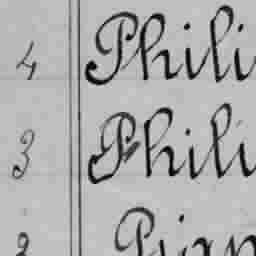 4 Phili
3 Phili